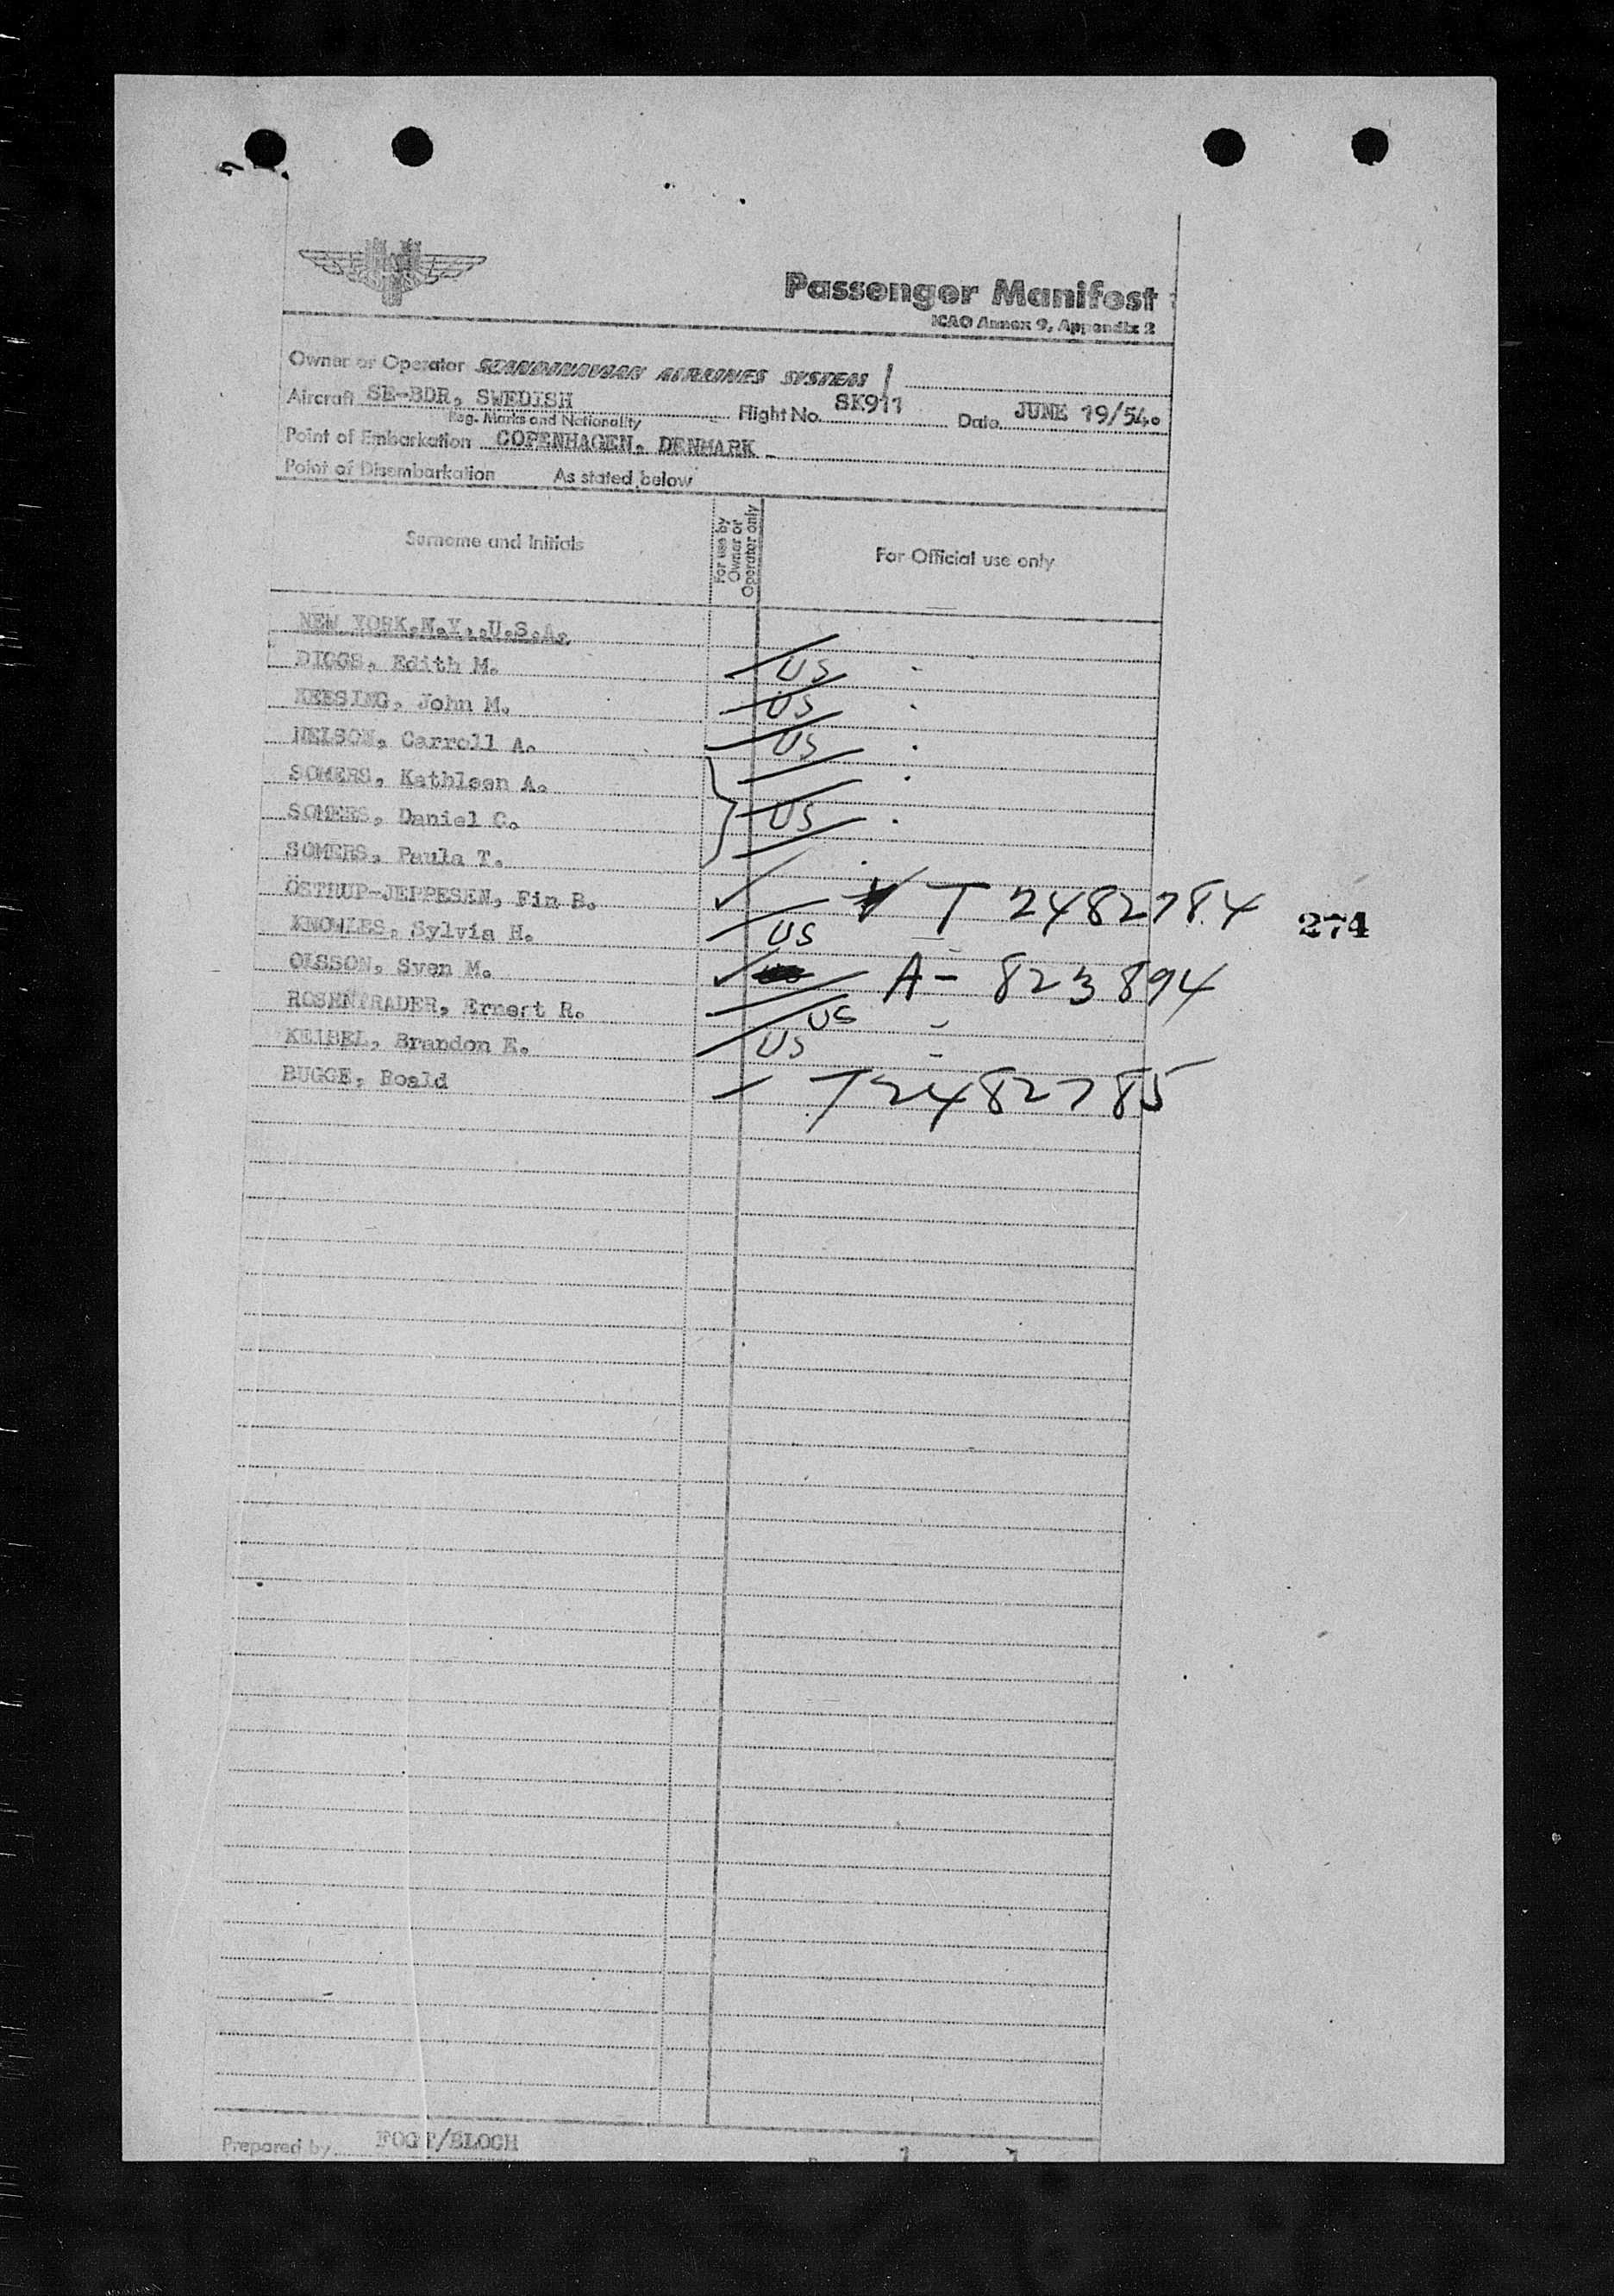 Passenger Manifest
ICAO Annex 9, Appendix 2
Owner or Operator SCANDINAVIAN AIRLINES SYSTEM
Aircraft SE-BDR, SWEDISH Flight No. SK911 Date JUNE 19/54.
Reg. Marks and Nationality
Point of Embarkation COPENHAGEN, DENMARK
Point of Disembarkation As stated below
Surname and Initials For use by Owner or Operator only For Official use only
NEW YORK,N.Y.,U.S.A.
DIGGS, Edith M. US
KEESING, John M. US
NELSON, Carroll A. US
SOMERS, Kathleen A.
SOMERS, Daniel C. US
SOMERS, Paula T.
ÖSTRUP-JEPPESEN, Fin B. T 2482784
274
KNOWLES, Sylvia H. US
OLSSON, Sven M. A- 823894
ROSENTRADER, Ernest R. US
KEIBEL, Brandon E. US
BUGGE, Roald T2482785
Prepared by FOGT/BLOCH 1 1